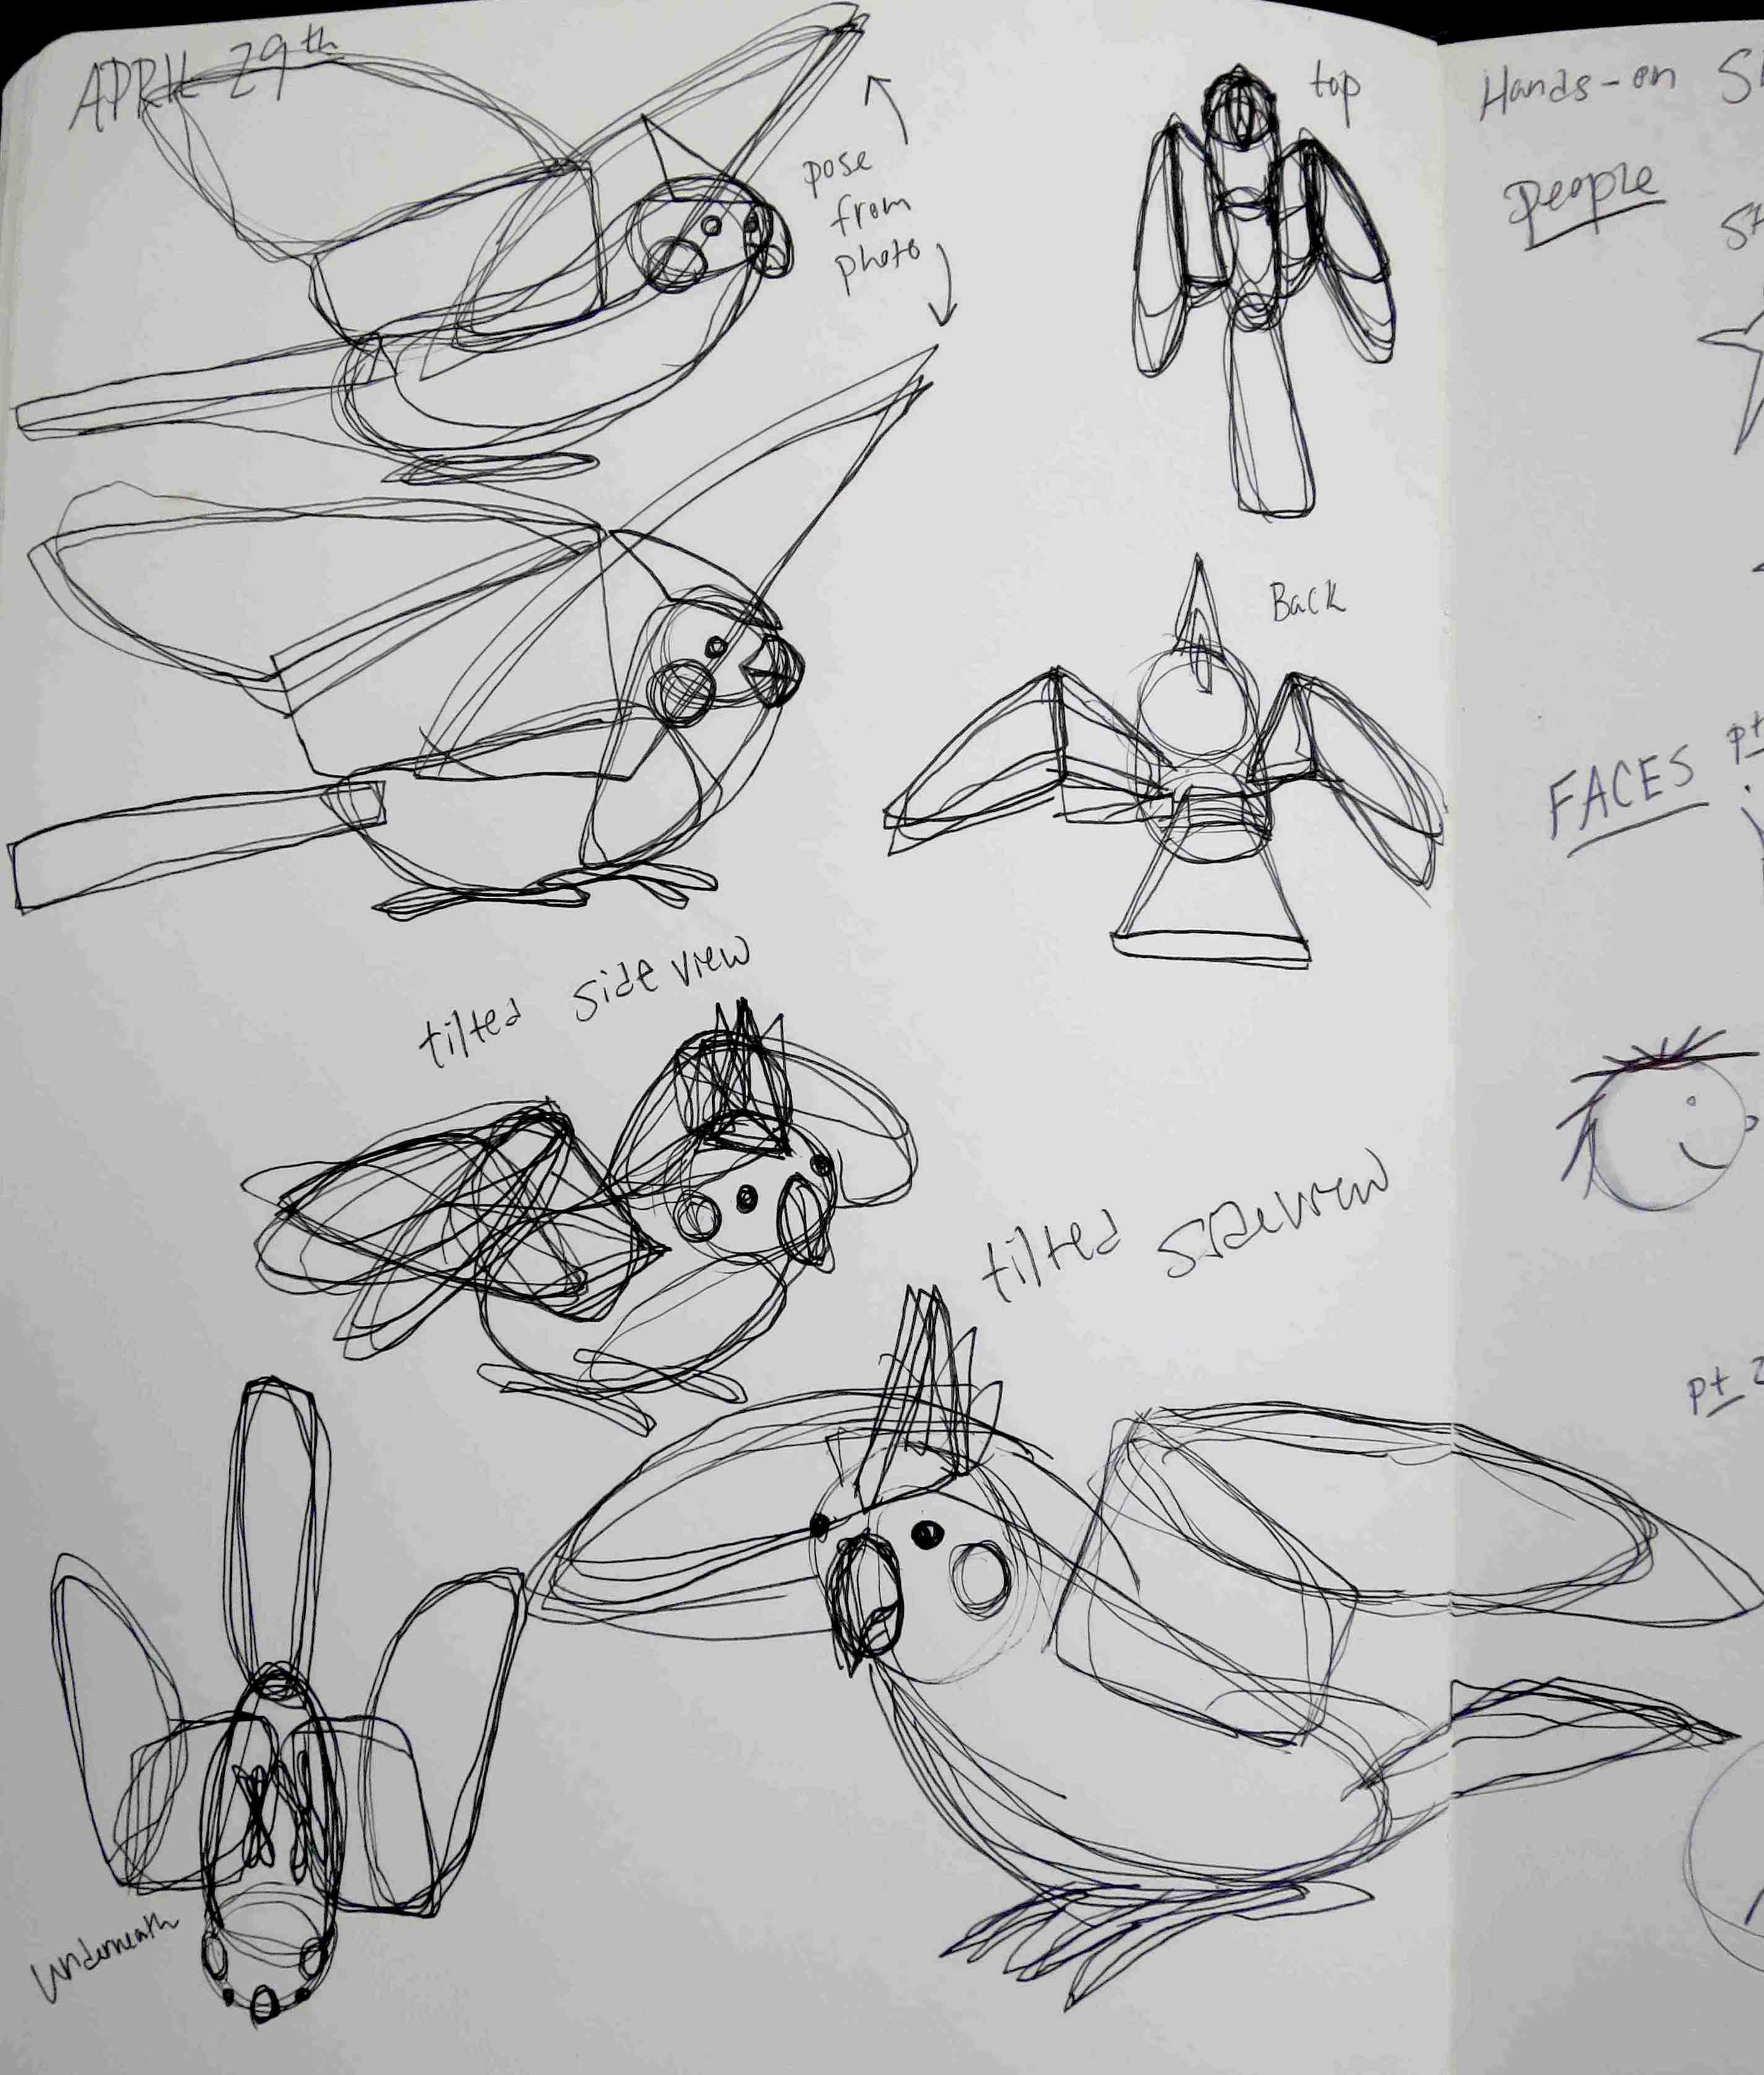 APRIL 29th
pose
from
photo
top
Back
tilted side view
tilted sideview
underneath
Hands-on
People
St
FACES pt
pt 2